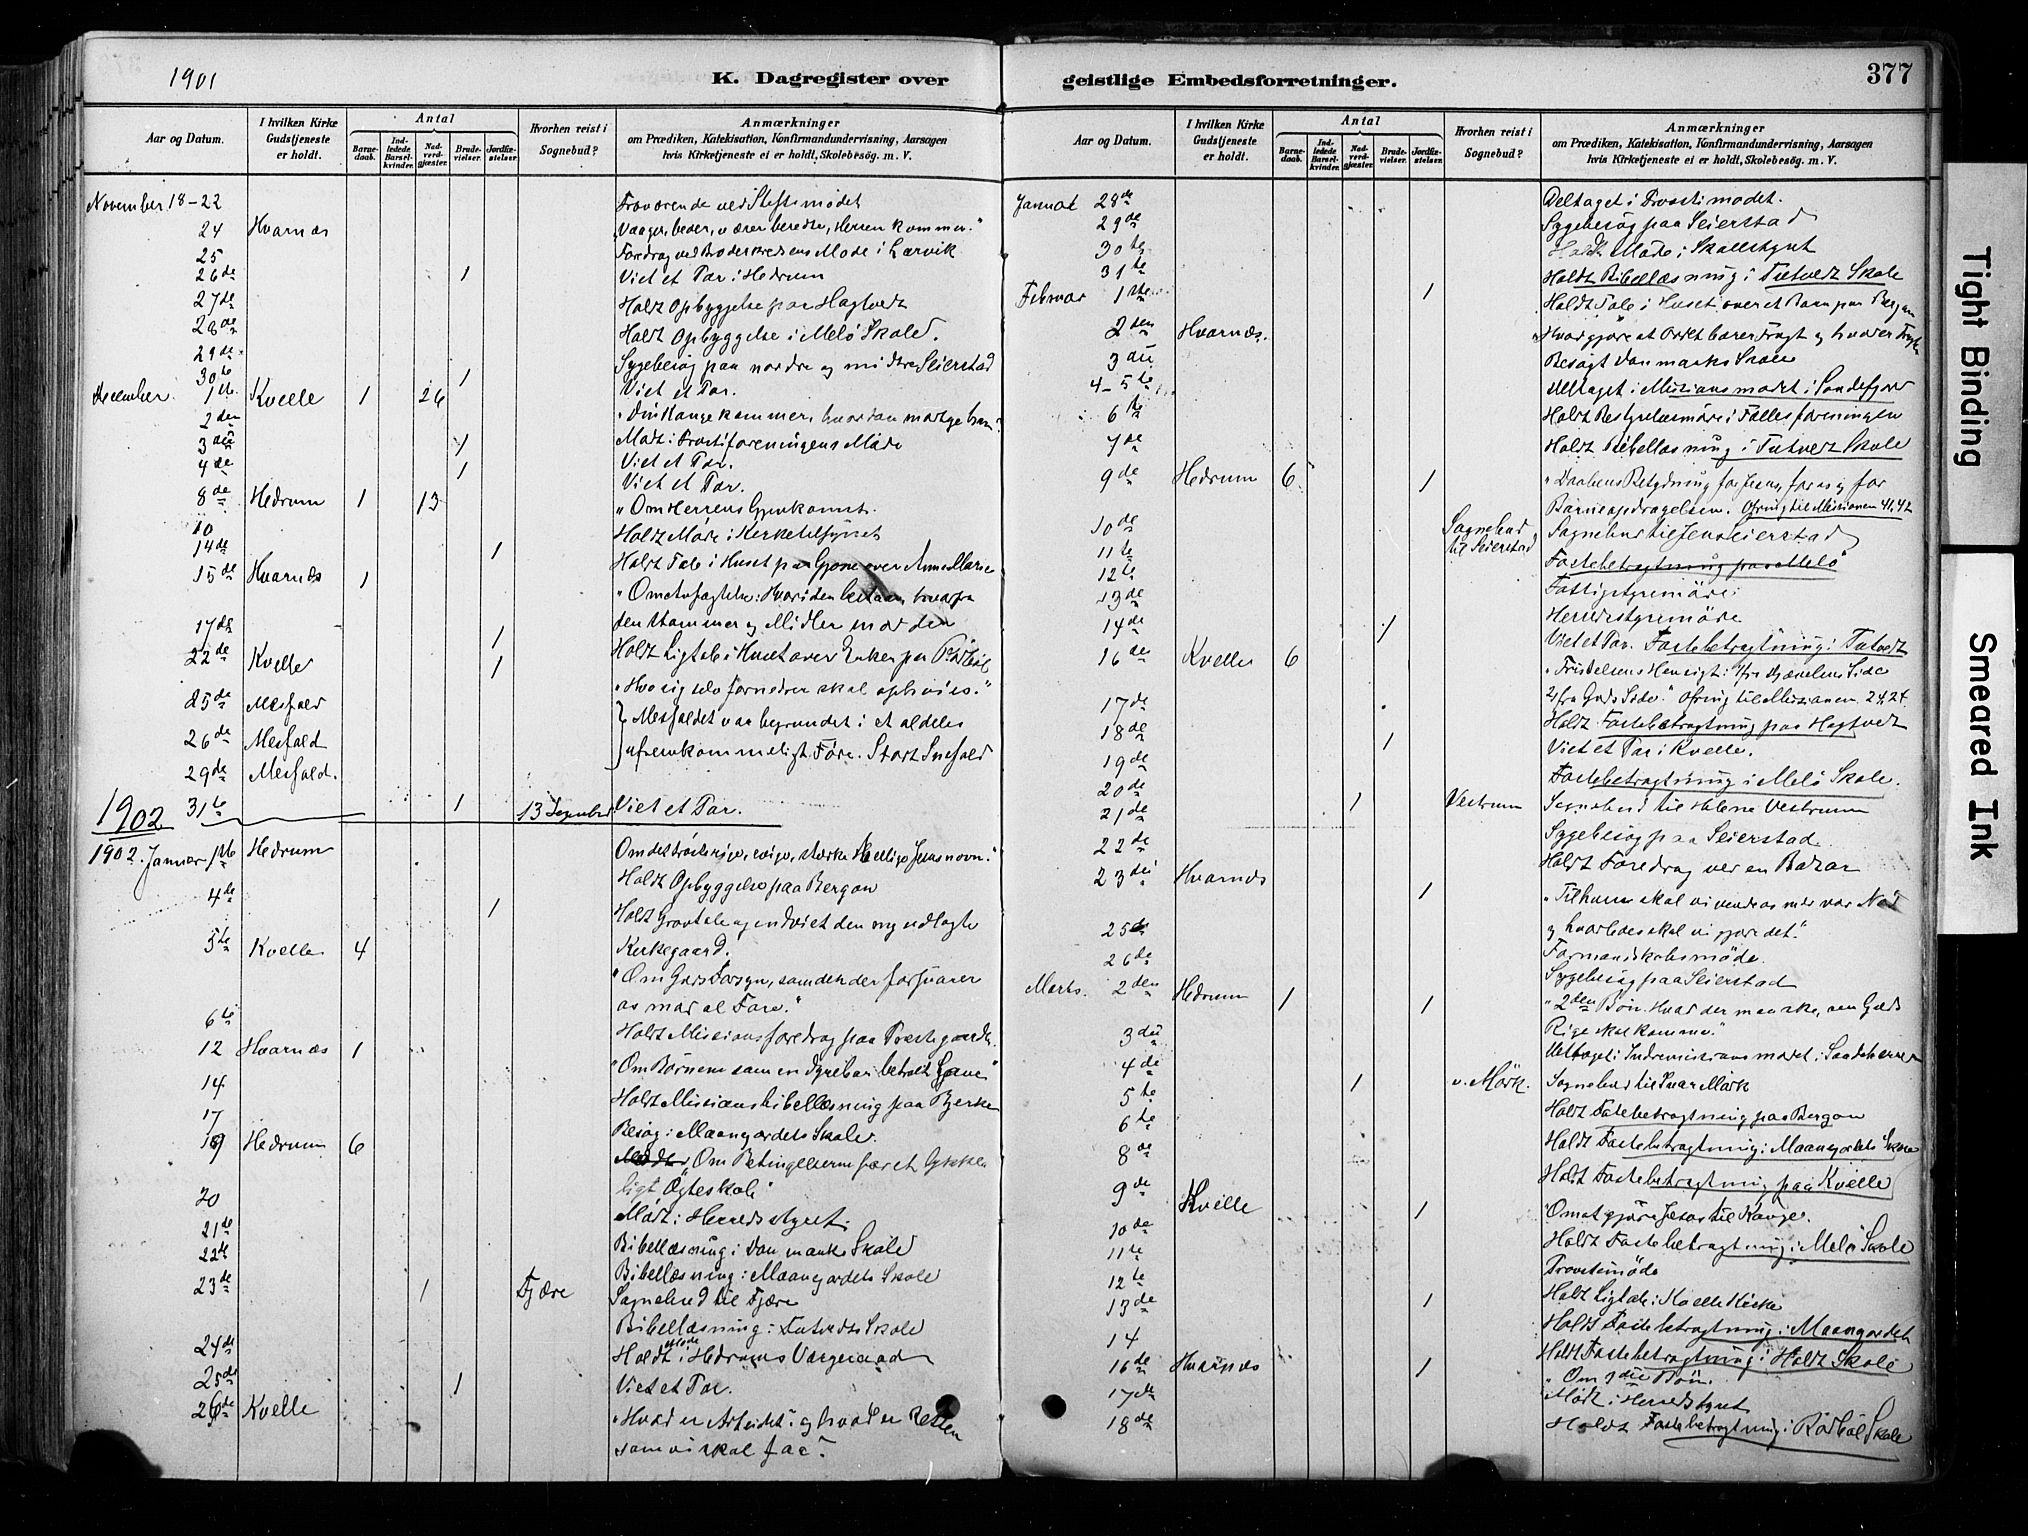 1901
K. Dagregister over
Aar og Datum.
I hvilken Kirke Gudstjeneste er holdt.
Antal
Barnedaab.
Indledede Barselkvinder.
Nadverdgjæster.
Brudevielser.
Jordfæstelser.
Hvorhen reist i Sognebud?
Anmærkninger
om Prædiken, Katekisation, Konfirmandundervisning, Aarsagen
hvis Kirketjeneste ei er holdt, Skolebesøg. m. V.
November 18-22 Fraværende ved Stiftsmødet
24 Hvarnæs "Vaager, beder, værer beredte, Herren kommer."
25 Foredrag ved Møde i Larvik
26de 1 Viet et Par i Hedrum
27de Holdt Opbyggelse paa Hagtvedt
28de Holdt Opbyggelse i Melø Skole.
29de Sygebesøg paa nordre og midtre Seierstad
30te 1 Viet et Par.
December 1ste Kvelle 1 26 "Din Konge kommer, hvordan modtage ham?
2den Mødt i Møde
3die 1 Viet et Par.
4de 1 Viet et Par.
8de Hedrum 1 13 "Om Herrens Gjenkomst.
10 Holdt Møde i Kirketilsynet
14de 1 Holdt Tale i Huset paa Gjone over Anne Marie
15de Hvarnæs 1 "Om
den Stammer og Midler mod den
17de 1 Holdt Ligtale i Huset over Enken paa
22de Kvelle 1 "Hvo sig selv fornedrer skal ophøies."
25de Mesfald Mesfaldet var begrundet i et aldeles
26de Mesfald ufremkommeligt Føre. Stort Snefald
29de Mesfald.
31te 1 13 Sognebud Viet et Par.
1902
1902. Januar 1ste Hedrum Om det trøsterige, evige, stærke Hellige Jesusnavn."
4de Holdt Opbyggelse paa Bergan
1 Holdt Gravtale og indviet den ny udlagte
5te Kvelle 4 Kirkegaard.
"Om Guds Forsyn, som den der forsvarer
os mod al Fare."
6te Holdt Missionsforedrag paa Præstegaarden
12 Hvarnæs 1 "Om Børnene som en dyrebar betroet Gave"
14 Holdt Missionsbibellæsning paa Bjerke
17 Besøg i Maanejordets Skole.
19 Hedrum 6 Om Betingelserne for et lykke
ligt Ægteskab
20 Mødt i Herredsstyret.
21de Bibellæsning i Danmarks Skole
22de Bibellæsning i Maanejordets Skole
23de 1 Fjære Sognebud til Fjære
Bibellæsning i Tutvedts Skole
24de Holdt Møde i Hedrums Værgeraad
25de 1 Viet et Par.
26de Kvelle "Hvad er Arbeidet? og hvad er Retten
som vi skal faa?
geistlige Embedsforretninger.
377
Aar og Datum.
I hvilken Kirke Gudstjeneste er holdt.
Antal
Barnedaab.
Indledede Barselkvinder.
Nadverdgjæster.
Brudevielser.
Jordfæstelser.
Hvorhen reist i Sognebud?
Anmærkninger
om Prædiken, Katekisation, Konfirmandundervisning, Aarsagen
hvis Kirketjeneste ei er holdt, Skolebesøg. m. V.
Januar 28de Deltaget i Provstimødet.
29de Sygebesøg paa Seierstad
30te Møde i Skolestyret
31te Holdt Bibellæsning i Tutvedt Skole
Februar 1ste 1 Holdt Tale i Huset over et Barn paa Bergan
2den Hvarnæs. "Hvad gjør at Ordet bærer Frugt og hvad er Frugten
3die Besøgt Danmarks Skole
4-5te Deltaget i Missionsmødet i Sandefjord
6te Holdt Bestyrelsesmøde i Fællesforeningen
7de Holdt Bibellæsning i Tutvedt Skole
9de Hedrum 6 1 "Daabens Betydning for Jesus, for os og for
Barneopdragelsen. Ofring til Missionen 41,42
10de Sognebud til Seierstad Sognebud til Jens Seierstad
11te Fastebetragtning paa Melø
12te Fattigstyremøde
13de Herredsstyremøde
14de 1 Viet et Par. Fastebetragtning i Tutvedt
16de Kvelle 6 "Fristelsens Hensigt: 1/ fra Djævelens Side
2/ fra Guds Side." Ofring til Missionen 24,24.
17de Holdt Fastebetragtning paa Hagtvedt
18de 1 Viet et Par i Kvelle.
19de Fastebetragtning i Melø Skole.
20de
21de 1 Vestrum Sognebud til Helene Vestrum
22de Sygebesøg paa Seierstad
23die Hvarnæs Holdt Foredrag ved en Bazar
1 "Til hvem skal vi vende os med vor Nød
og hvorledes skal vi gjøre det."
25de Formandskabsmøde.
26de Sygebesøg paa Seierstad
Marts. 2den Hedrum 1 1 "2den Bøn. Hvad der maa ske, om Guds
Rige skal komme."
3die Deltaget i Indremissionsmødet i Sandeherred
4de 1 v. Mørk. Sognebud til Mørk
5te Holdt Fastebetragtning paa Bergan
6te Holdt Fastebetragtning i Maanejordets Skole
8de Holdt Fastebetragtning paa Kvelle
9de Kvelle 1 "Om at gjøre Jesus til Konge.
10de Holdt Fastebetragtning i Melø Skole
11te Provstemøde
12te
13de 1 Holdt Ligtale i Kvelle Kirke
Holdt Fastebetragtning i Maanejordet
14 Holdt Fastebetragtning i Holdt Skole
16de Hvarnæs 1 "Om 3die Bøn.
17de Mødt i Herredsstyret
18de Holdt Fastebetragtning i Rødbøl Skole
Tight Binding
Smeared Ink